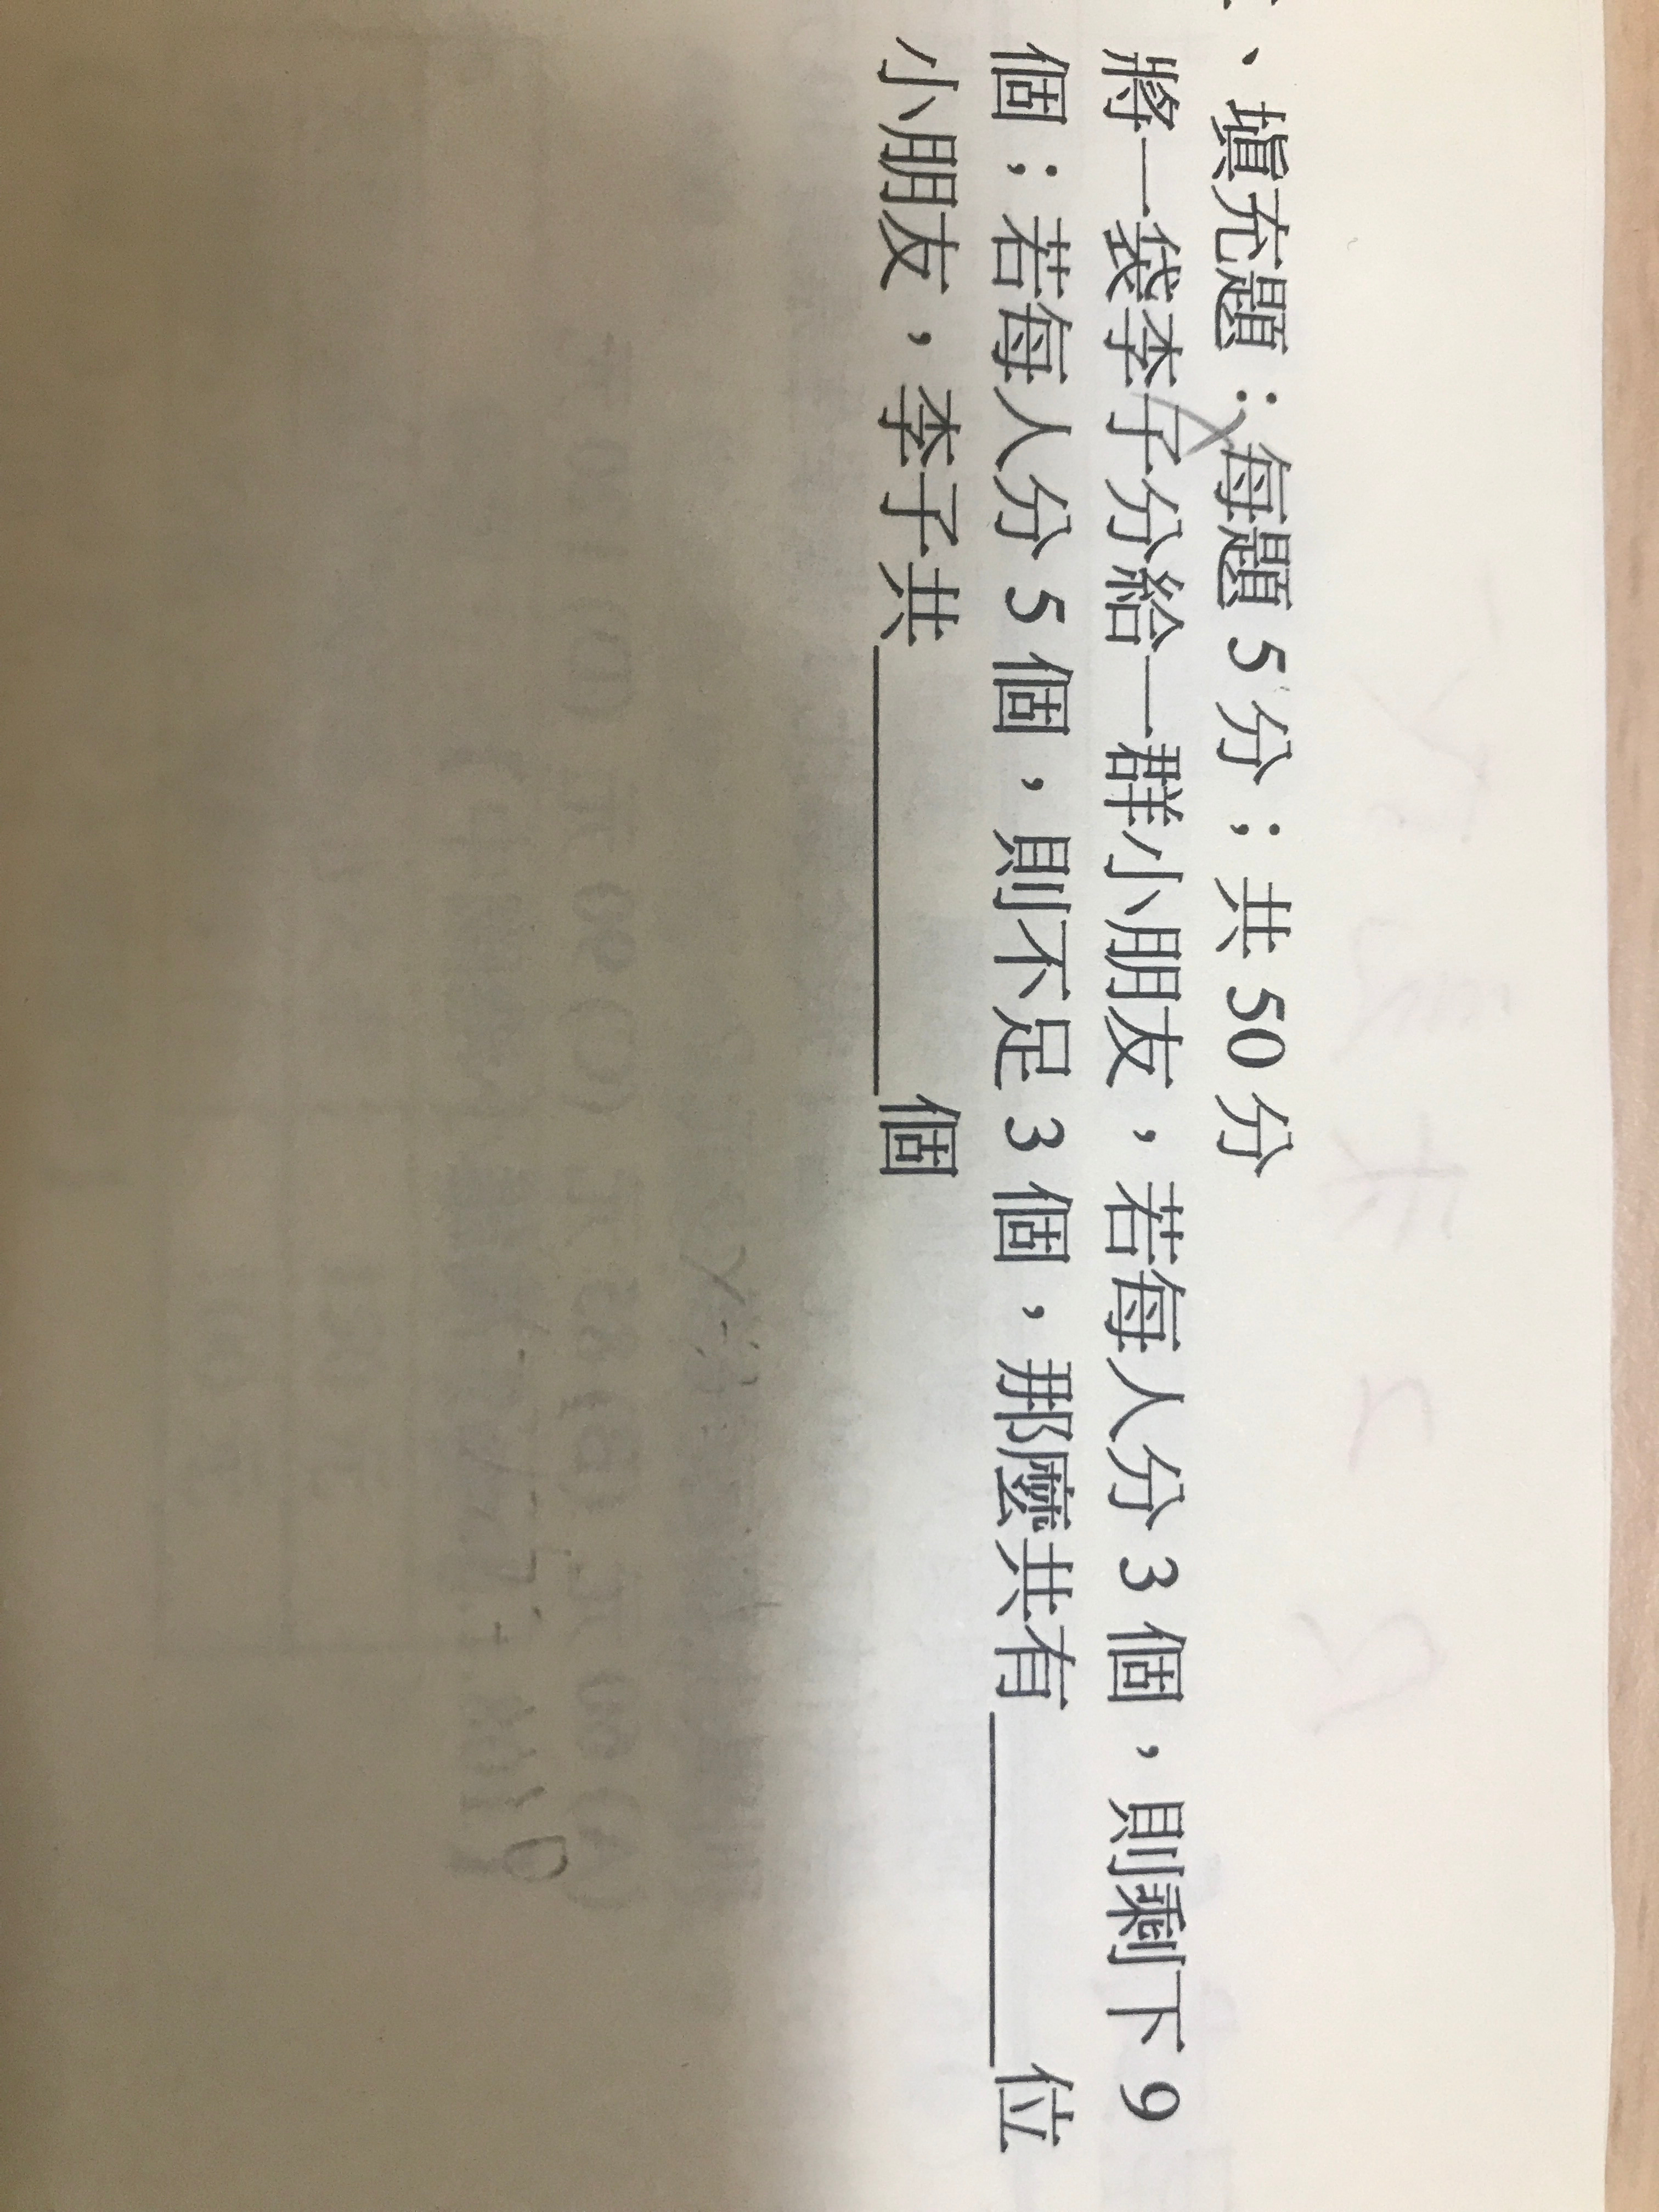 、填充題：每題 5 分；共 50 分
將一袋李子分給一群小朋友，若每人分 3 個，則剩下 9
個；若每人分 5 個，則不足 3 個，那麼共有________位
小朋友，李子共________個